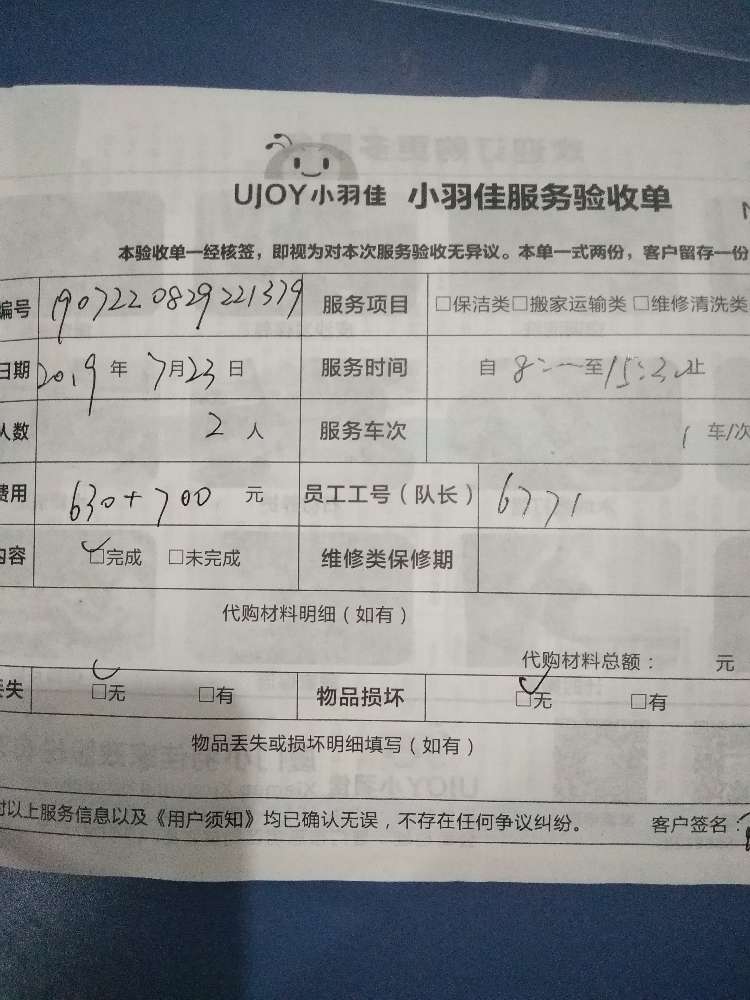 UJOY小羽佳 小羽佳服务验收单
本验收单一经核签，即视为对本次服务验收无异议。本单一式两份，客户留存一份
编号 1907220829221379 服务项目 □保洁类□搬家运输类 □维修清洗类
日期 2019 年 7 月 23 日 服务时间 自 8:一 至 15:30 止
人数 2 人 服务车次 1 车/次
费用 630+700 元 员工工号（队长） 6771
内容 ☑完成 □未完成 维修类保修期
代购材料明细（如有）
代购材料总额： 元
丢失 ☑无 □有 物品损坏 ☑无 □有
物品丢失或损坏明细填写（如有）
对以上服务信息以及《用户须知》均已确认无误，不存在任何争议纠纷。 客户签名：